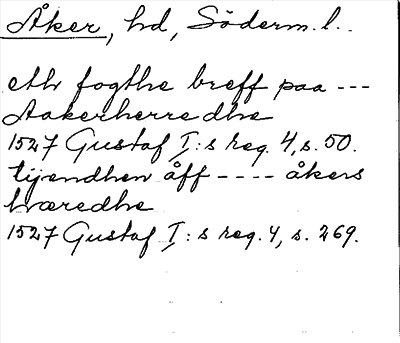 Åker, hd, Söderm. l..
eth fogthe breff paa ---
Aakerherredhe
1527 Gustaf I:s reg. 4, s. 50.
tijendhen åff ---- åkers
hæredhe
1527 Gustaf I:s reg. 4, s. 269.